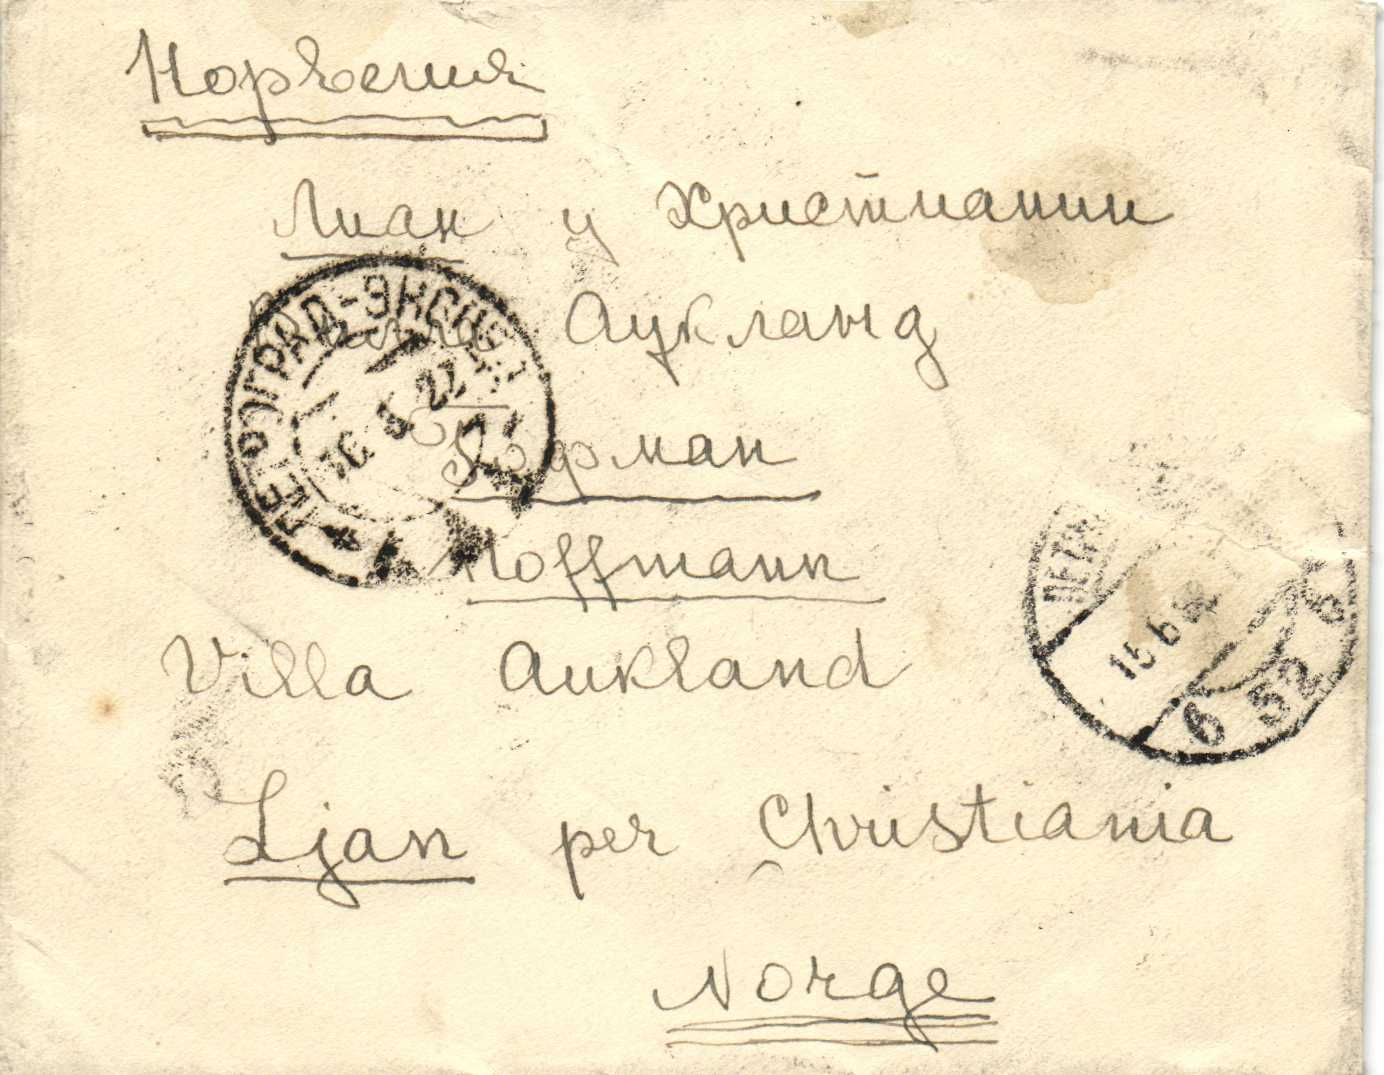 Норвегия
Лиан у Христиании
Вилла Аукланд
Гофман
Hoffmann
Villa Aukland
Ljan per Christiania
Norge
ПЕТРОГРАД-ЭКСПЕД.
15 6
6 52 6